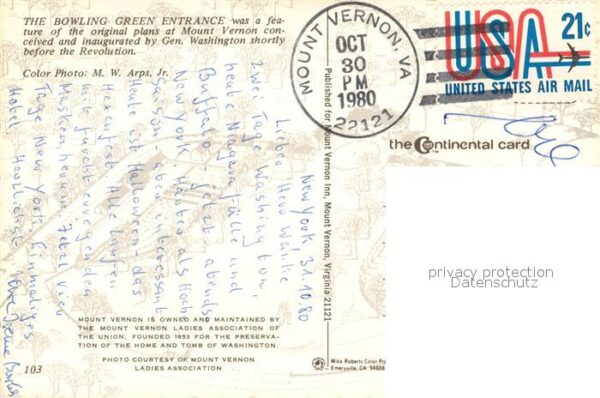 THE BOWLING GREEN ENTRANCE was a fea-
ture of the original plans at Mount Vernon con-
ceived and inaugurated by Gen. Washington shortly
before the Revolution.
Color Photo: M. W. Arps, Jr.
New York, 31.10.80
Lieber Herr
Zwei Tage Washington,
heute Niagarafälle und
Buffalo - jetzt abends
New York. Mauter als Hoch-
saison - aber interessant
Heute ist Halloween - das
Hexenfest. Alle laufen
mit furchterregenden
Masken herum. Jetzt vier
Tage New York. Einmaliges
Hotel. Herzlichst
MOUNT VERNON IS OWNED AND MAINTAINED BY
THE MOUNT VERNON LADIES ASSOCIATION OF
THE UNION, FOUNDED 1853 FOR THE PRESERVA-
TION OF THE HOME AND TOMB OF WASHINGTON.
PHOTO COURTESY OF MOUNT VERNON
LADIES ASSOCIATION
103
Published for Mount Vernon Inn, Mount Vernon, Virginia 22121
Mike Roberts Color Pro
Emeryville, CA 94608
MOUNT VERNON, VA
OCT
30
PM
1980
22121
USA 21c
UNITED STATES AIR MAIL
the Continental card
privacy protection
Datenschutz